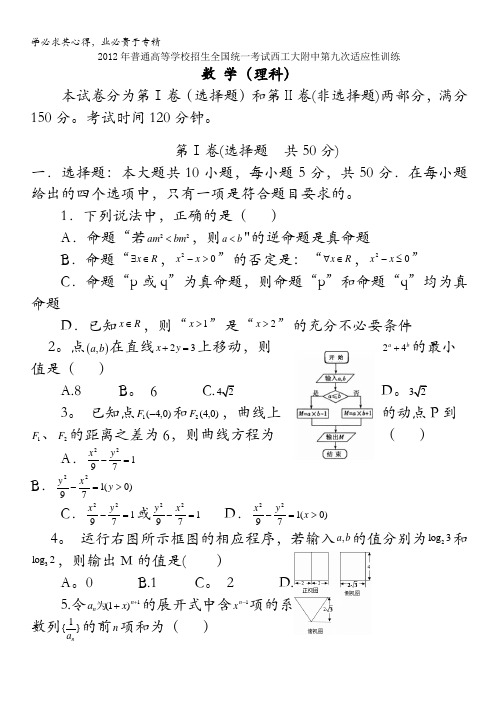 学必求其心得，业必贵于专精
2012年普通高等学校招生全国统一考试西工大附中第九次适应性训练
数 学（理科）
本试卷分为第Ⅰ卷（选择题）和第Ⅱ卷(非选择题)两部分，满分
150分。考试时间120分钟。
第Ⅰ卷(选择题 共50分)
一．选择题：本大题共10小题，每小题5分，共50分．在每小题
给出的四个选项中，只有一项是符合题目要求的。
1．下列说法中，正确的是（ ）
A．命题“若am²<bm²，则a<b"的逆命题是真命题
B．命题“∃x∈R，x²−x>0”的否定是：“∀x∈R，x²−x≤0”
C．命题“p或q”为真命题，则命题“p”和命题“q”均为真
命题
D．已知x∈R，则“x>1”是“x>2”的充分不必要条件
2。点(a,b)在直线x+2y=3上移动，则 2ᵃ+4ᵇ的最小
值是（ ）
A.8 B。 6 C.4√2 D。3√2
3。 已知点F₁(−4,0)和F₂(4,0)，曲线上 的动点P到
F₁、F₂的距离之差为6，则曲线方程为 （ ）
A．x²/9−y²/7=1
B．y²/9−x²/7=1(y>0)
C．x²/9−y²/7=1或y²/9−x²/7=1 D．x²/9−y²/7=1(x>0)
4。 运行右图所示框图的相应程序，若输入a,b的值分别为log₂3和
log₃2，则输出M的值是( )
A。0 B.1 C。 2 D.
5.令aₙ为(1+x)ⁿ⁺¹的展开式中含xⁿ⁻¹项的系
数列{1/aₙ}的前n项和为（ ）
开始
输入a,b
是 a≤b 否
M=a×b-1 M=a×b+1
输出M
结束
2 2
正视图
a
2√3
侧视图
2√3
俯视图